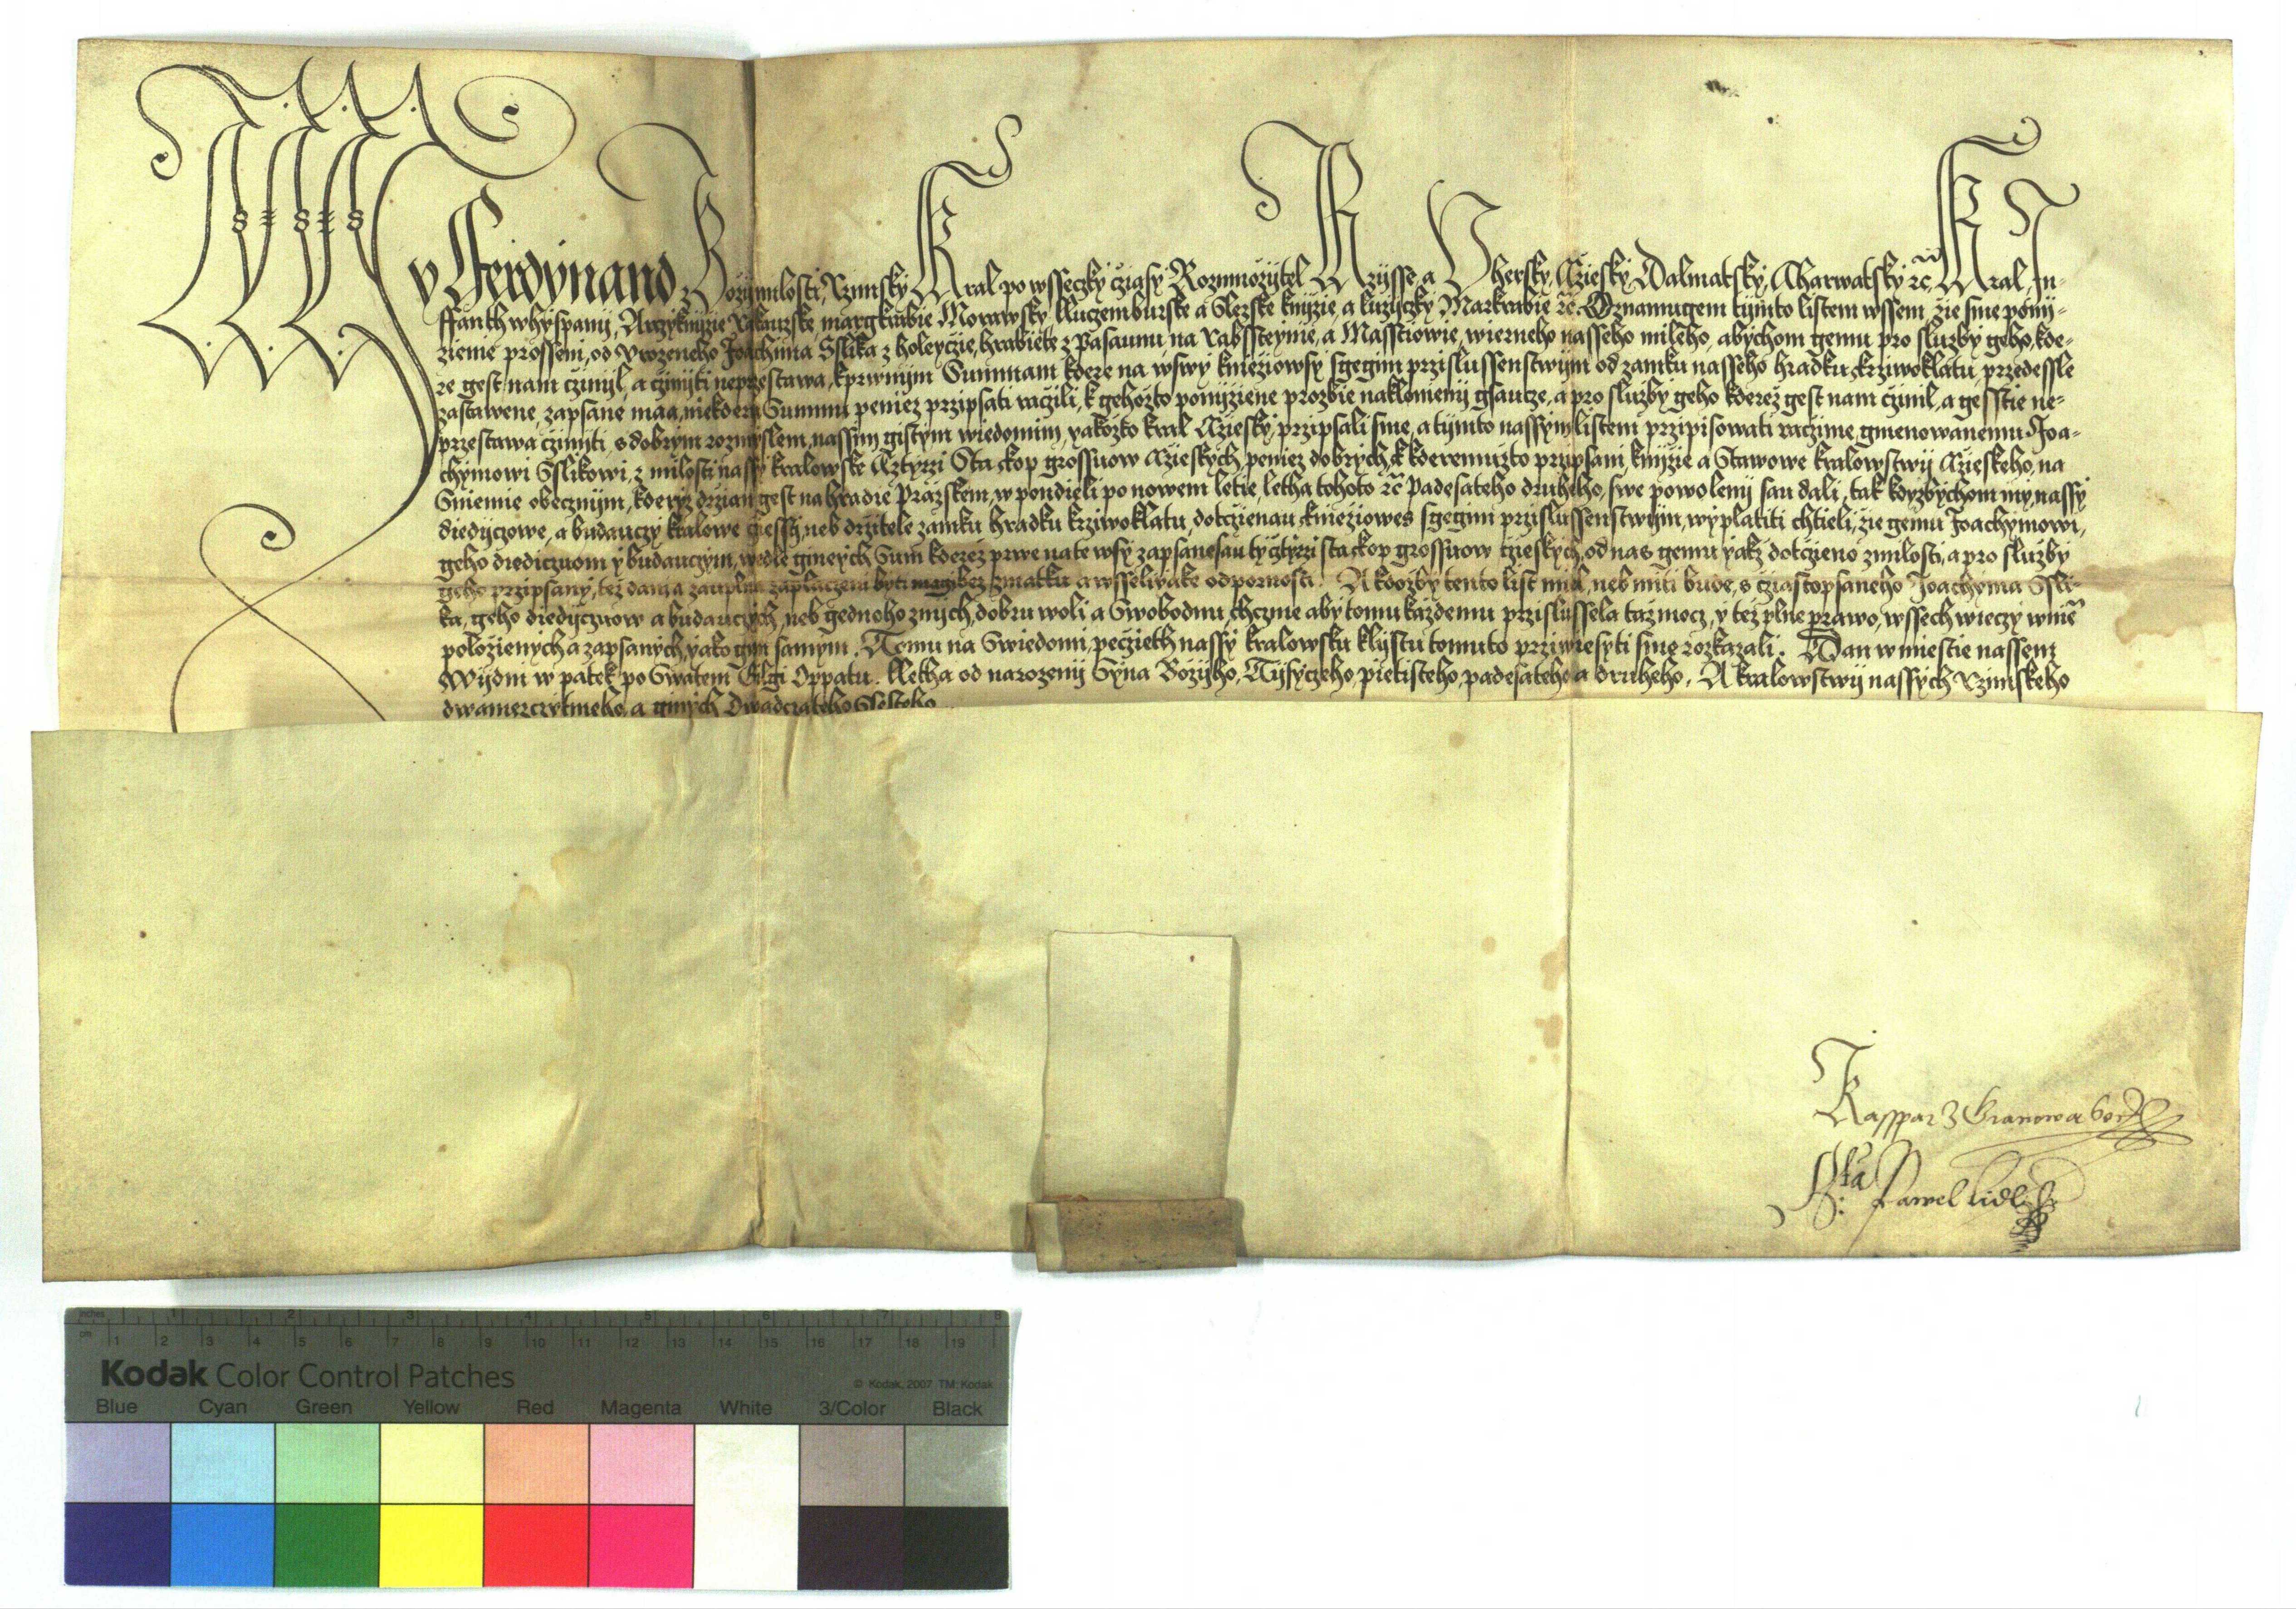 My Fferdynand z Božij milosti, Rzimsky Kral po wsseczky cziasy Rozmnožytel Rzijsse, a Vhersky, Cziesky, Dalmatsky, Charwatsky ꝛc̃ Kral, In-
ffanth w Hyspanij, Arczyknijže Rakauzske margkrabie Morawsky, Luczemburske a Slezske knijžie, a Lužyczky Markrabie ꝛc̃. Oznamugem tijmto listem wssem, žie sme ponij-
zienie prosseni, od Vrozeneho Joachima Sslika z Holeyczie, hrabiete z Pasaunu na Rabssteynie, a Masstiowie, wierneho nasseho mileho, abychom gemu pro služby geho, kde-
re gest nam czinijl, a czinijti neprzestawa, k prwnijm Summam kdere na wswy kniežiowsy s gegim przislussenstwijm od zamku nasseho hradku krziwoklatu przedessle
zastawene, zapsane maa, niekderu Summu peniez przipsati raczili, k gehožto ponijziene prozbie naklonieny gsaucze, a pro služby geho kderež gest nam czinil, a gesstie ne-
przestawa czinijti, s dobrym rozmyslem, nassim gistym wiedomim, yakožto kral Cziesky, przipsali sme, a tijmto nassym listem przipisowati raczime, gmenowanemu Joa-
chymowi Sslikowi, z milosti nassy kralowske Cztyrzi Sta kop grossuow Czieskych, peniez dobrych, k kderemužto przipsani, knijžie a Stawowe kralowstwij Czieskeho, na
Sniemie obecznijm, kderyz držan gest na hradie Pražskem, w pondieli po nowem letie, letha tohoto ꝛc̃ padesateho druheho, swe powolenij sau dali, tak kdyžbychom my, nassy
diedyczowe, a budauczy kralowe Czesstij, neb držitele zamku hradku krziwoklatu, dotczienau kniežiowes s gegim przislussenstwijm, wyplatiti chtieli, žie gemu Joachymowi,
geho diediczuom y budauczym, wedle gineých Sum kderež prwe na te wsy zapsane sau tyž cztyrzi sta kop grossuow czieskych, od nas gemu yakž dotczieno z milosti, a pro služby
geho przipsany, též dana a zauplna zaplaczena byti magi bez zmatku a wsselýyake odpornosti. A kdožby tento list miel, neb miti bude, s cziastopsaneho Joachyma Ssli-
ka, geho diedyczuow a budauczých, neb gednoho z nich, dobru woli a Swobodnu, chczme aby tomu každemu przislussela taž mocz, y tež plne prawo, wssech wieczy w niem̃
položienych a zapsanych, yako gim samym. Tomu na Swiedomi, pečžieth nassy kralowsku k lijstu tomuto prziwiesyti sme rozkazali. Dan w miestie nassem
Wijdni w patek po Swatem Gilgi Oppatu. Letha od narozenij Syna Božijho, Tijsyczeho, pietisteho, padesateho a druheho. A kralowstwij nassych Rzimskeho
dwamezczytmeho, a ginych Dwadczateho Ssesteho.
Kasspar z Granowa
Pawel
inches 1 2 3 4 5 6 7 8
cm 1 2 3 4 5 6 7 8 9 10 11 12 13 14 15 16 17 18 19
Kodak Color Control Patches
© Kodak, 2007 TM: Kodak
Blue Cyan Green Yellow Red Magenta White 3/Color Black